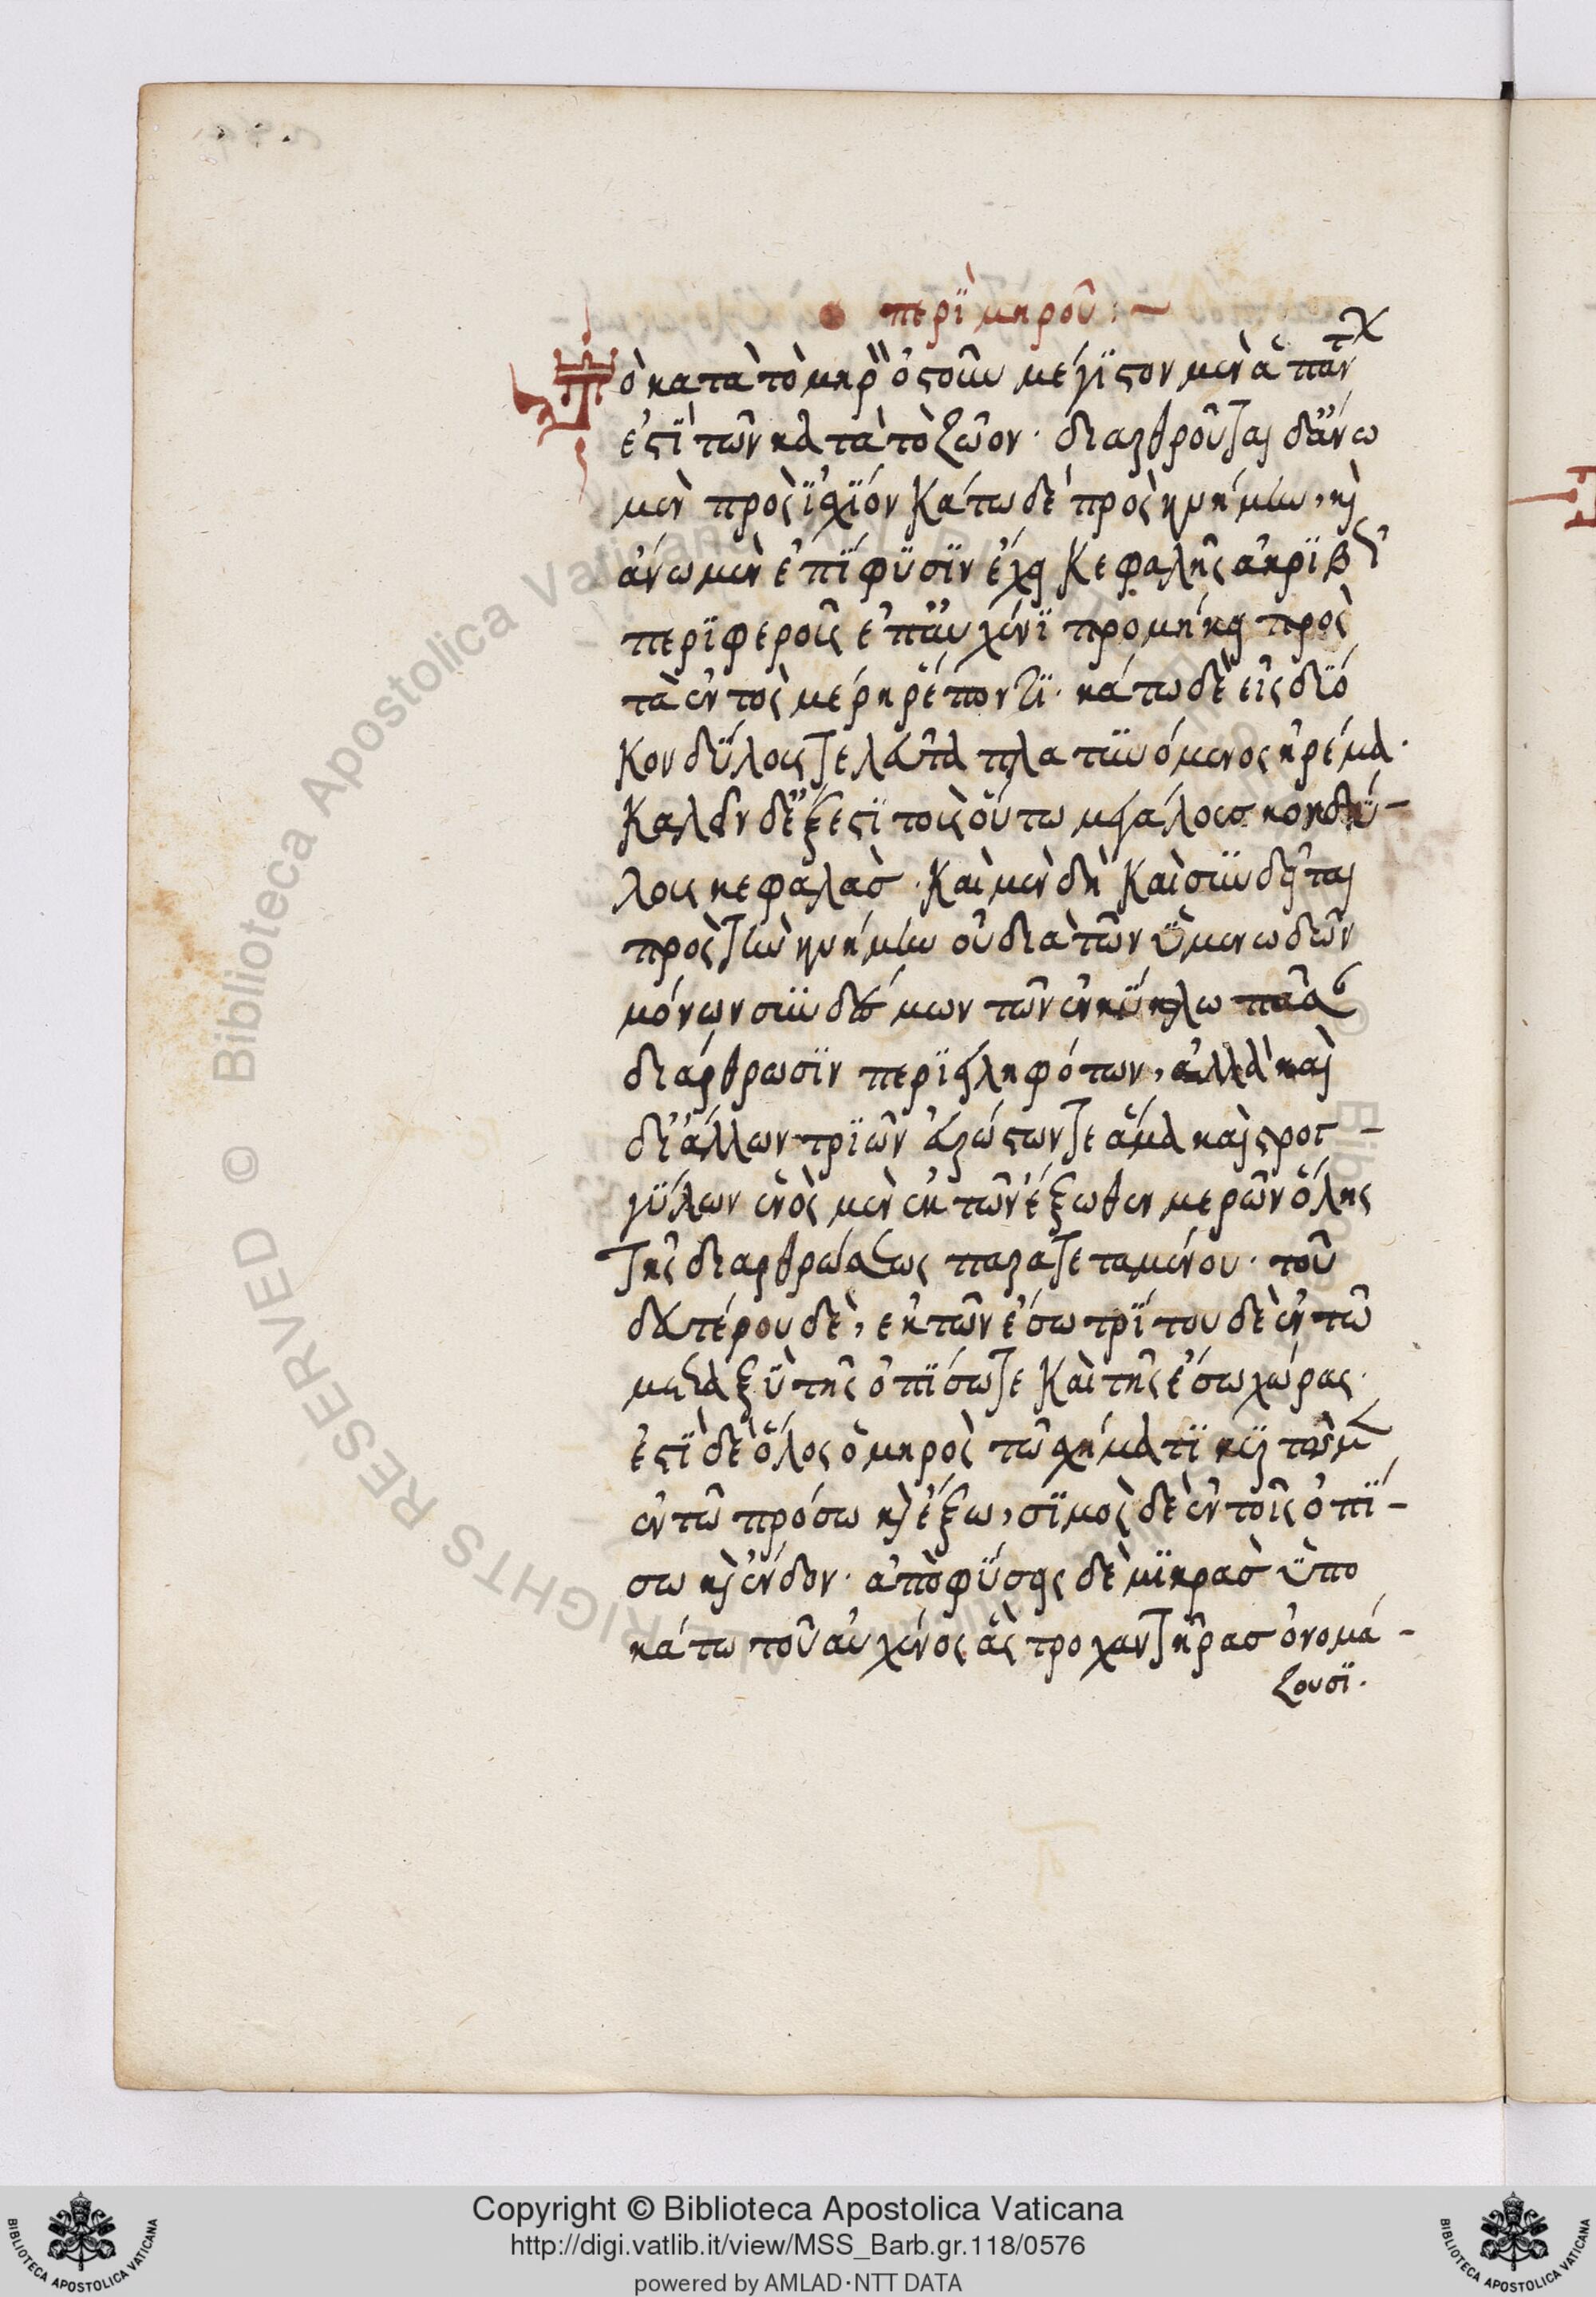 περὶ μηροῦ:—
Τὸ κατὰ τὸν μηρὸν ὀστοῦν μέγιστον μὲν ἁπάντων
ἐστὶ τῶν κατὰ τὸ ζῶον· διαρθροῦται δ' ἄνω
μὲν πρὸς ἰσχίον κάτω δὲ πρὸς κνήμην, καὶ
ἄνω μὲν ἐπίφυσιν ἔχει κεφαλῆς ἀκριβῶς
περιφεροῦς ἐπ' αὐχένι προμήκει πρὸς
τὰ ἐντὸς μέρη ῥέποντι· κάτω δὲ εἰς δύο
κονδύλους τελευτᾶ πλατυνόμενος ἠρέμα·
καλεῖν δ' ἔξεστι τοὺς οὕτω μεγάλους κονδύ-
λους κεφαλὰς· καὶ μὲν δὴ καὶ συνδεῖται
πρὸς τὴν κνήμην οὐ διὰ τῶν ὑμενωδῶν
μόνων συνδέσμων τῶν ἐν κύκλω πᾶσαν
διάρθρωσιν περιειληφότων, ἀλλὰ καὶ
δι' ἄλλων τριῶν εὐρώστων τε ἅμα καὶ στρογ-
γύλων ἑνὸς μὲν ἐκ τῶν ἔξωθεν μερῶν ὅλης
τῆς διαρθρώσεως παρατεταμένου· τοῦ
δευτέρου δὲ, ἐκ τῶν ἔσω τρίτου δὲ ἐν τῶ
μεταξὺ τῆς ὀπίσω τε καὶ τῆς ἔσω χώρας·
ἐστὶ δὲ ὅλος ὁ μηρὸς τῶ σχήματι κυρτὸς μὲν
ἐν τῶ πρόσω καὶ ἔξω, σιμὸς δὲ ἐν τοῖς ὀπί-
σω καὶ ἔνδον· ἀποφύσεις δὲ μικρὰς ὑπο
κάτω τοῦ αὐχένος ἃς τροχαντῆρας ὀνομά-
ζουσι.
Copyright © Biblioteca Apostolica Vaticana
http://digi.vatlib.it/view/MSS_Barb.gr.118/0576
powered by AMLAD·NTT DATA
BIBLIOTECA APOSTOLICA VATICANA
BIBLIOTECA APOSTOLICA VATICANA